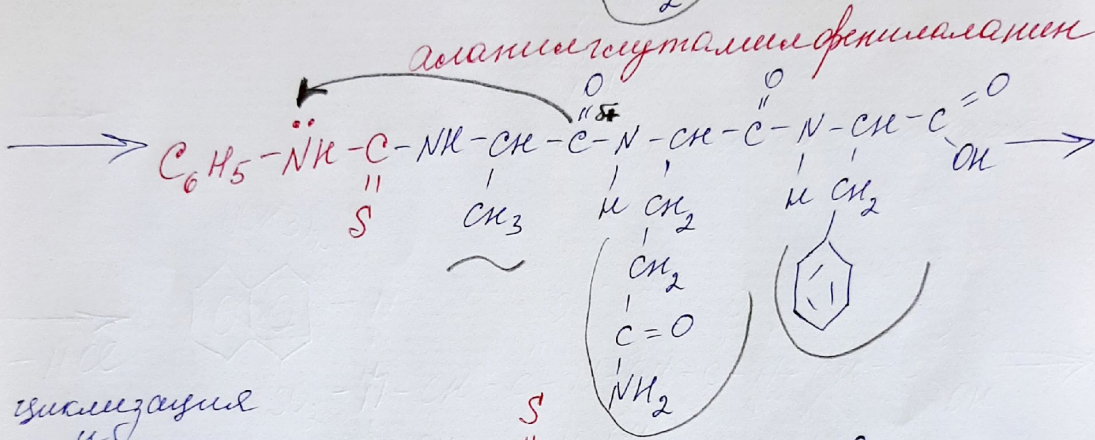 2
аланилглутамилфенилаланин
O O
C₆H₅-N̈H-C-NH-CH-C^δ+-N-CH-C-N-CH-C=O
S CH₃ H CH₂ H CH₂ OH
CH₂
C=O
NH₂
циклизация
S